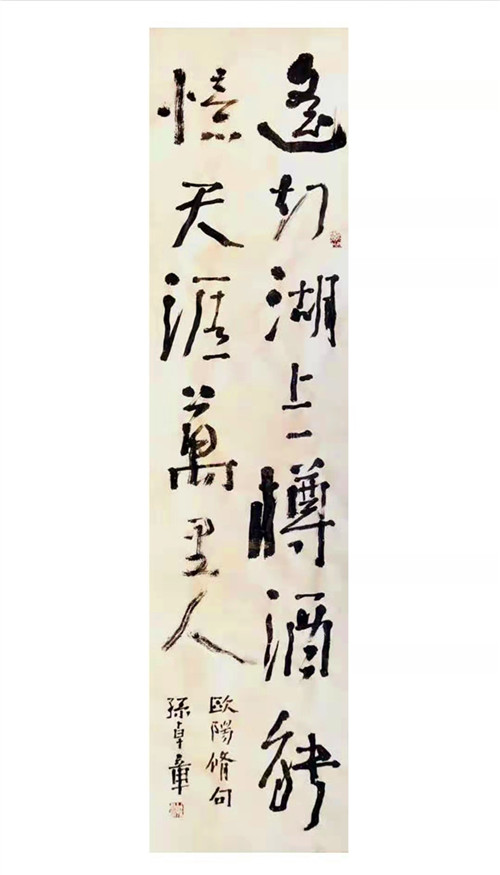 遙知湖上一樽酒能
憶天涯萬里人
欧陽脩句
孫卓章